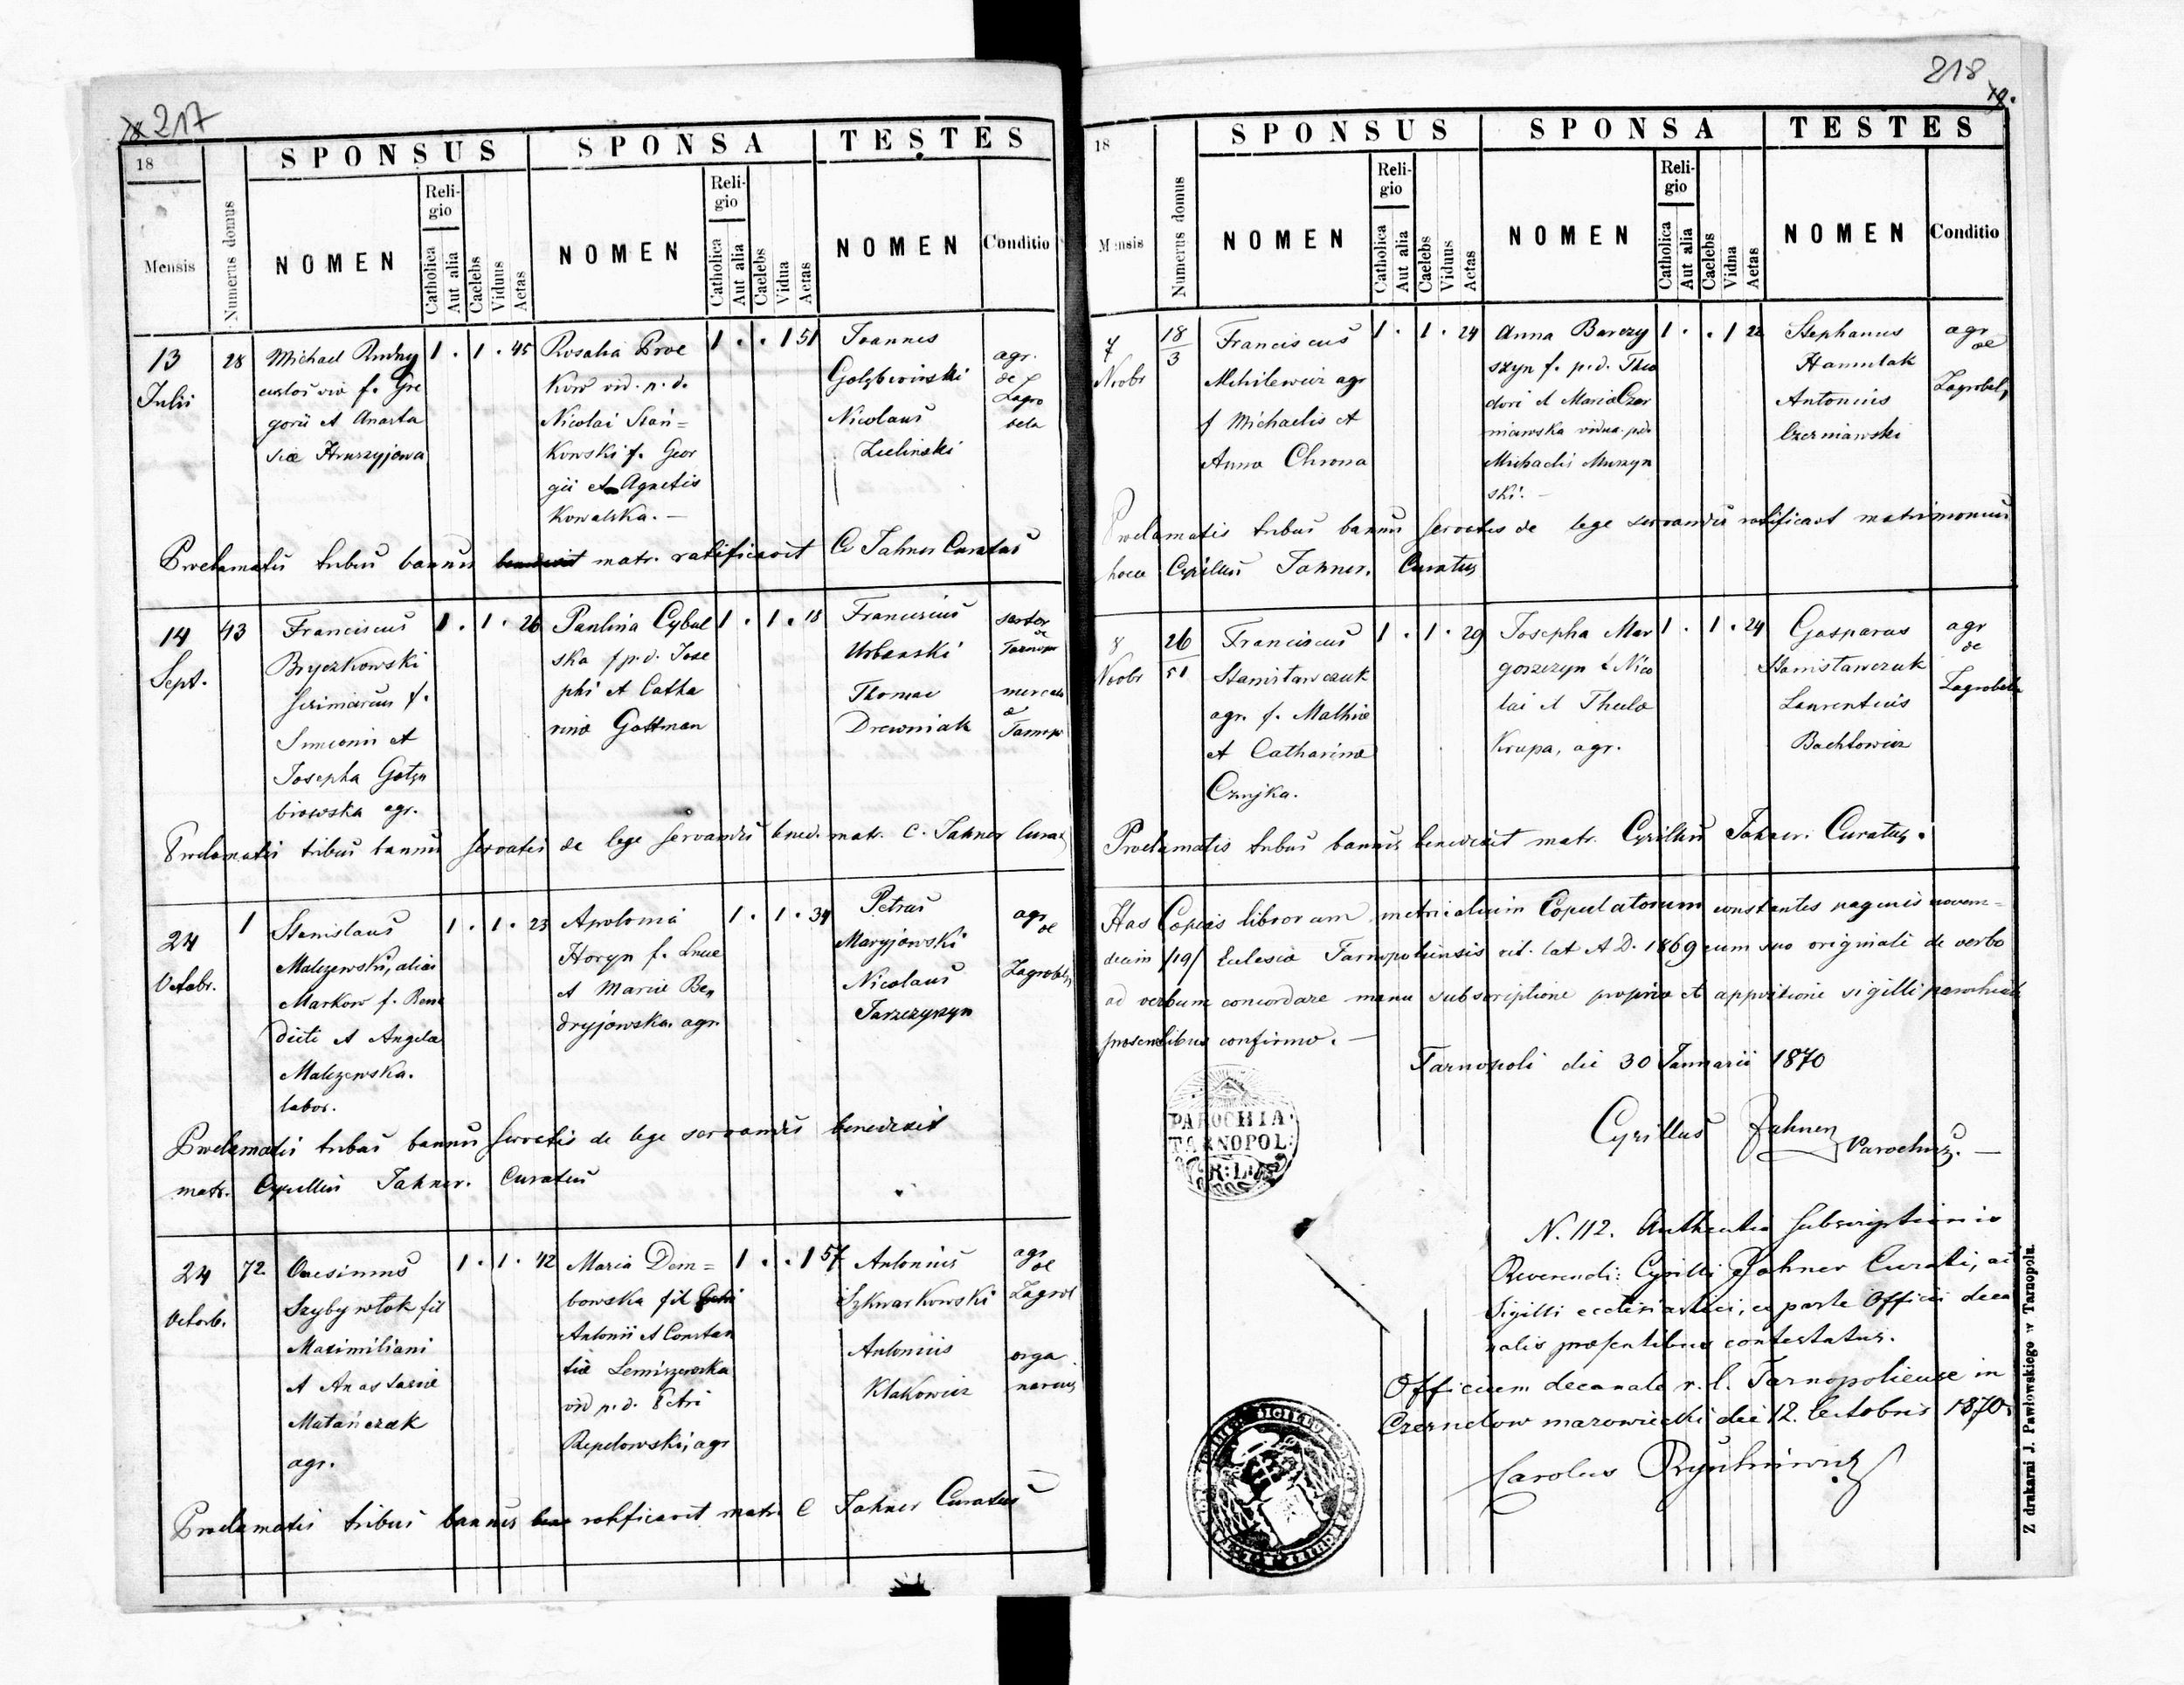 217
18
Mensis
Numerus domus
SPONSUS
NOMEN
Reli-
gio
Catholica
Aut alia
Caelebs
Viduus
Aetas
SPONSA
NOMEN
Reli-
gio
Catholica
Aut alia
Caelebs
Vidua
Aetas
TESTES
NOMEN
Conditio
13
Julii
28
Michael
f. Gre
gorii et Anasta
siæ
1 . 1 . 45
Rosalia
vid. p. d.
Nicolai Stań=
kowski f. Geor
gii et Agnetis
Kowalska. —
1 . . 1 51
Joannes
Gołębiowski
Nicolaus
Zieliński
agr.
de
Zagro
bela
Proclamatis tribus bannis matr. ratificavit C. Jahner Curatus
14
Sept.
43
Franciscus
Bryczkowski
f.
Simeonis et
Josepha Gołę
biowska agr.
1 . 1 . 26
Paulina Cybul
ska f p. d. Jose
phi et Catha
rinæ Gottman
1 . 1 . 18
Franciscus
Urbanski
Thomas
Drewniak
sartor
de
Tarnop
mercato
de
Tarnop
Proclamatis tribus bannis servatis de lege servandis bened. matr. C. Jahner Curat
24
Octobr.
1
Stanislaus
Malczewski, alias
Markow f. Bene
dicti et Angela
Malczewska.
labor.
1 . 1 . 23
Apolonia
Horyn f. Lucæ
et Mariæ Be
dryjowska agr
1 . 1 . 34
Petrus
Maryjowski
Nicolaus
agr
de
Zagrobel
Proclamatis tribus bannis servatis de lege servandis benedixit
matr. Cyrillus Jahner. Curatus
24
Octob.
72
Onesimus
fil
Maximiliani
et Anastasiæ
Matańczak
agr.
1 . 1 . 42
Maria Dem=
bowska fil
Antonii et Constan
tiæ Lemiszewska
vid p. d. Petri
Repelowski, agr
1 . . 1 57
Antonius
Szkwarkowski
Antonius
Kłakowicz
agr
de
Zagrob
orga
narius
Proclamatis tribus bannis ratificavit matr. C Jahner Curatus
218
18
Mensis
Numerus domus
SPONSUS
NOMEN
Reli-
gio
Catholica
Aut alia
Caelebs
Viduus
Aetas
SPONSA
NOMEN
Reli-
gio
Catholica
Aut alia
Caelebs
Vidna
Aetas
TESTES
NOMEN
Conditio
7
Novbr
18
3
Franciscus
Michilewicz agr
f Michaelis et
Anna Chrona
1 . 1 . 24
Anna Barczy
szyn f. p. d. Theo
dori et Maria Czer
niawska vidua p. d.
Michaelis Muszyn
ski. —
1 . . 1 22
Stephanus
Hamulak
Antonius
Czerniawski
agr
de
Zagrobel
Proclamatis tribus bannis servatis de lege servandis ratificavit matrimonium
hocce Cyrillus Jahner. Curatus
8
Novbr
26
51
Franciscus
Stanisławczuk
agr. f. Mathiæ
et Catharinæ
Czujka.
1 . 1 . 29
Josepha Mar
goszczyn f. Nico
lai et Thecla
Krupa, agr.
1 . 1 . 24
Gasparus
Stanisławczuk
Laurentius
Bachtowicz
agr
de
Zagrobela
Proclamatis tribus bannis benedixit matr. Cyrillus Jahner. Curatus.
Has Copias librorum metricalium Copulatorum constantes paginis novem=
decim /19/ Eclesiæ Tarnopoliensis rit. lat A. D. 1869 cum suo originali de verbo
ad verbum concordare manu subscriptione propria et appositione sigilli parochialis
præsentibus confirmo. —
Tarnopoli die 30 Januarii 1870
Cyrillus Jahner
Parochus. —
PAROCHIA
TARNOPOL:
R:L:
N. 112. Authentia subscriptionis
Reverendi: Cyrilli Jahner Curati, ac
Sigilli ecclesiastici, ex parte Officii deca
nalis præsentibus contestatur.
Officium decanale r. l. Tarnopoliense in
Czernelow mazowiecki die 12. Octobris 1870.
Carolus
Z drukarni J. Pawłowskiego w Tarnopolu.